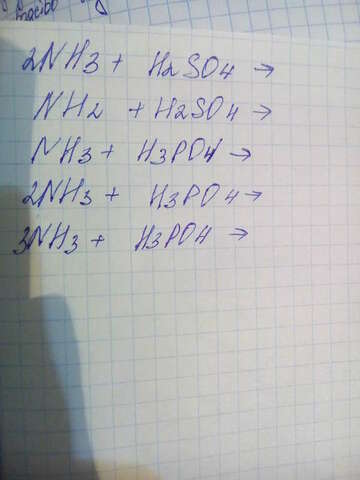 2NH3 + H2SO4 →
NH2 + H2SO4 →
NH3 + H3PO4 →
2NH3 + H3PO4 →
3NH3 + H3PO4 →